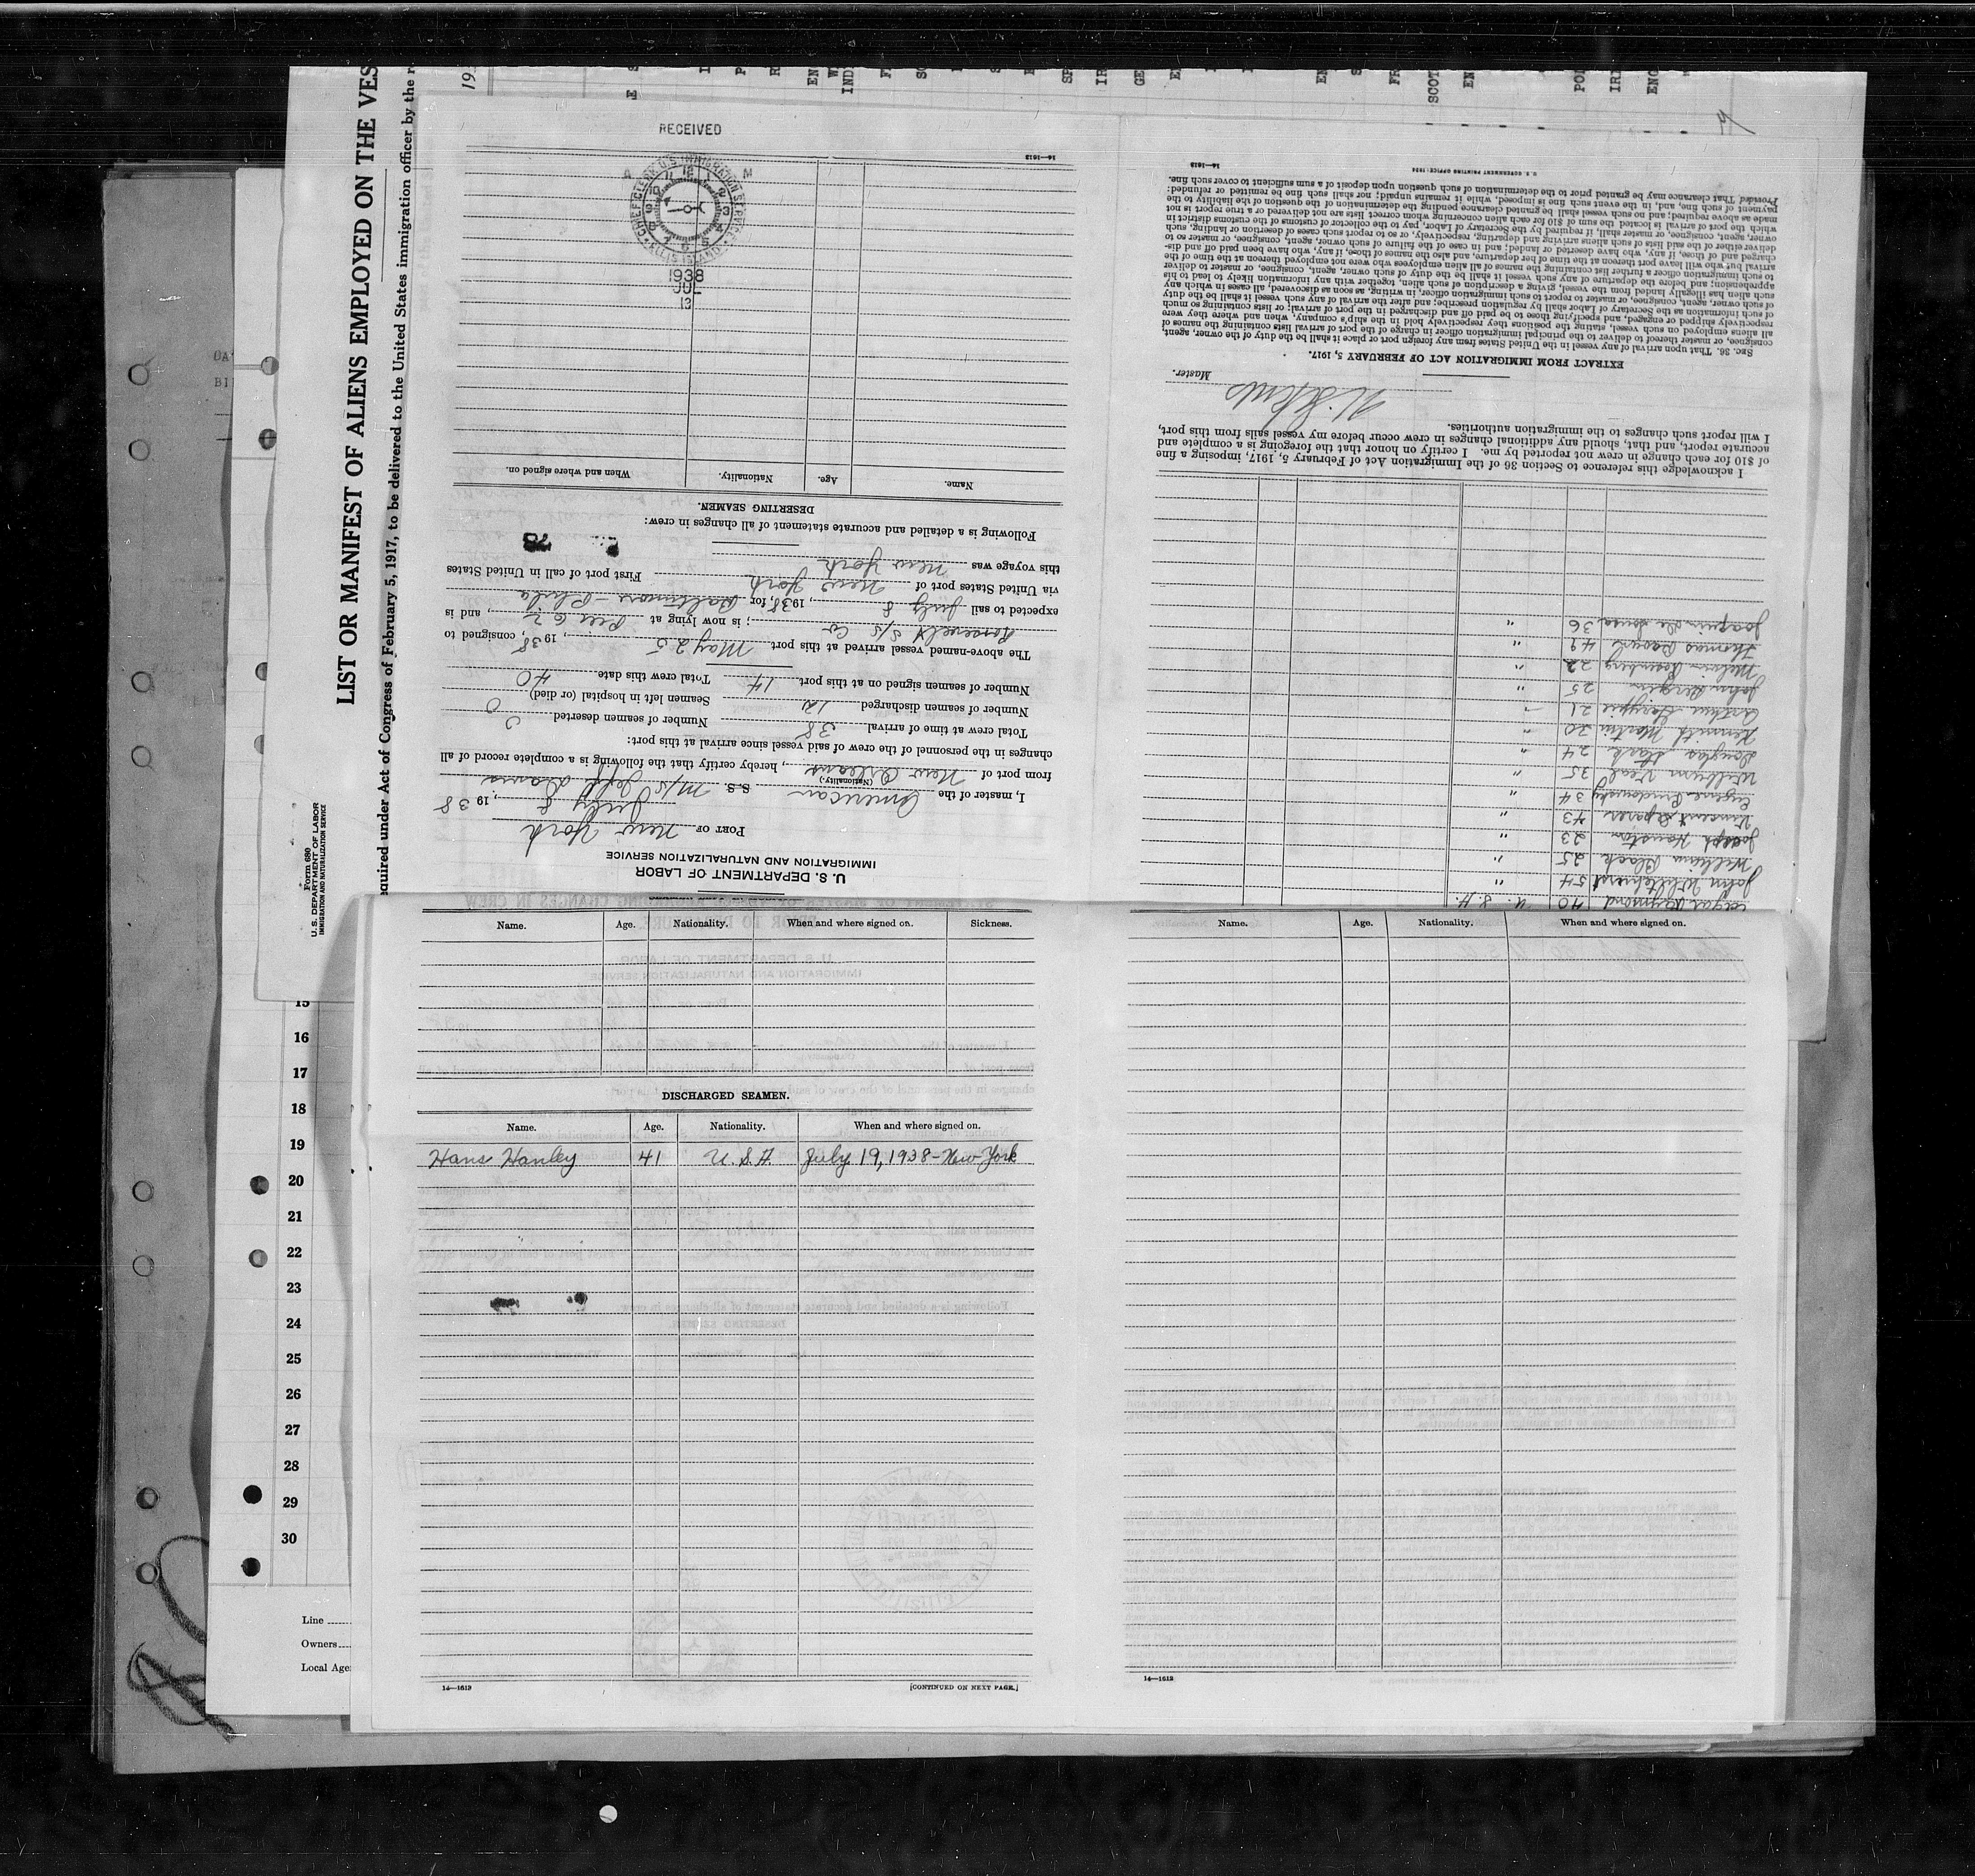 LIST OR MANIFEST OF ALIENS EMPLOYED ON THE VES
quired under Act of Congress of February 5, 1917, to be delivered to the United States immigration officer by the r
Form 680
U. S. DEPARTMENT OF LABOR
IMMIGRATION AND NATURALIZATION SERVICE
U. S. DEPARTMENT OF LABOR
IMMIGRATION AND NATURALIZATION SERVICE
PORT OF New York
July 8, 1938
I, master of the American S. S. M/S Jeff Davis
(Nationality)
from port of New Orleans, hereby certify that the following is a complete record of all
changes in the personnel of the crew of said vessel since arrival at this port:
Total crew at time of arrival 38 Number of seamen deserted 0
Number of seamen discharged 12 Seamen left in hospital (or died) 0
Number of seamen signed on at this port 14 Total crew this date 40
The above-named vessel arrived at this port May 25, 1938, consigned to
Roosevelt S/S Co; is now lying at Pier 62, and is
expected to sail July 8, 1938, for Baltimore - Phila
via United States port of New York First port of call in United States
this voyage was New York
78
Following is a detailed and accurate statement of all changes in crew:
DESERTING SEAMEN.
Name. Age. Nationality. When and where signed on.
RECEIVED
CHIEF CLERK U.S. IMMIGRATION SERVICE
ELLIS ISLAND
A M
1938
JUL
13
14—1613
40 U. S. A.
John Whitehurst 54 "
William Black 25 "
Joseph Houston 23 "
Vincent 43 "
Eugene 34 "
William Veal 35 "
Douglas Stark 24 "
Kenneth Martin 20 "
21 "
John Bergin 25 "
Melvin Rosenberg 22 "
Thomas 49 "
Joaquin de Sousa 36 "
I acknowledge this reference to Section 36 of the Immigration Act of February 5, 1917, imposing a fine
of $10 for each change in crew not reported by me. I certify on honor that the foregoing is a complete and
accurate report, and that, should any additional changes in crew occur before my vessel sails from this port,
I will report such changes to the immigration authorities.
Master.
EXTRACT FROM IMMIGRATION ACT OF FEBRUARY 5, 1917.
SEC. 36. That upon arrival of any vessel in the United States from any foreign port or place it shall be the duty of the owner, agent,
consignee, or master thereof to deliver to the principal immigration officer in charge of the port of arrival lists containing the names of
all aliens employed on such vessel, stating the positions they respectively hold in the ship's company, when and where they were
respectively shipped or engaged, and specifying those to be paid off and discharged in the port of arrival; or lists containing so much
of such information as the Secretary of Labor shall by regulation prescribe; and after the arrival of any such vessel it shall be the duty
of such owner, agent, consignee, or master to report to such immigration officer, in writing, as soon as discovered, all cases in which any
such alien has illegally landed from the vessel, giving a description of such alien, together with any information likely to lead to his
apprehension; and before the departure of any such vessel it shall be the duty of such owner, agent, consignee, or master to deliver
to such immigration officer a further list containing the names of all alien employees who were not employed thereon at the time of the
arrival but who will leave port thereon at the time of her departure, and also the names of those, if any, who have been paid off and dis-
charged and of those, if any, who have deserted or landed; and in case of the failure of such owner, agent, consignee, or master so to
deliver either of the said lists of such aliens arriving and departing, respectively, or so to report such cases of desertion or landing, such
owner, agent, consignee, or master shall, if required by the Secretary of Labor, pay to the collector of customs of the customs district in
which the port of arrival is located the sum of $10 for each alien concerning whom correct lists are not delivered or a true report is not
made as above required; and no such vessel shall be granted clearance pending the determination of the question of the liability to the
payment of such fine, and, in the event such fine is imposed, while it remains unpaid; nor shall such fine be remitted or refunded:
Provided That clearance may be granted prior to the determination of such question upon deposit of a sum sufficient to cover such fine.
U. S. GOVERNMENT PRINTING OFFICE: 1934
14—1613
Name. Age. Nationality. When and where signed on. Sickness.
DISCHARGED SEAMEN.
Name. Age. Nationality. When and where signed on.
Hans Hanley 41 U. S. A. July 19, 1938 - New York
14—1613 [CONTINUED ON NEXT PAGE.]
Name. Age. Nationality. When and where signed on.
14—1613
15
16
17
18
19
20
21
22
23
24
25
26
27
28
29
30
Line
Owners
Local Age